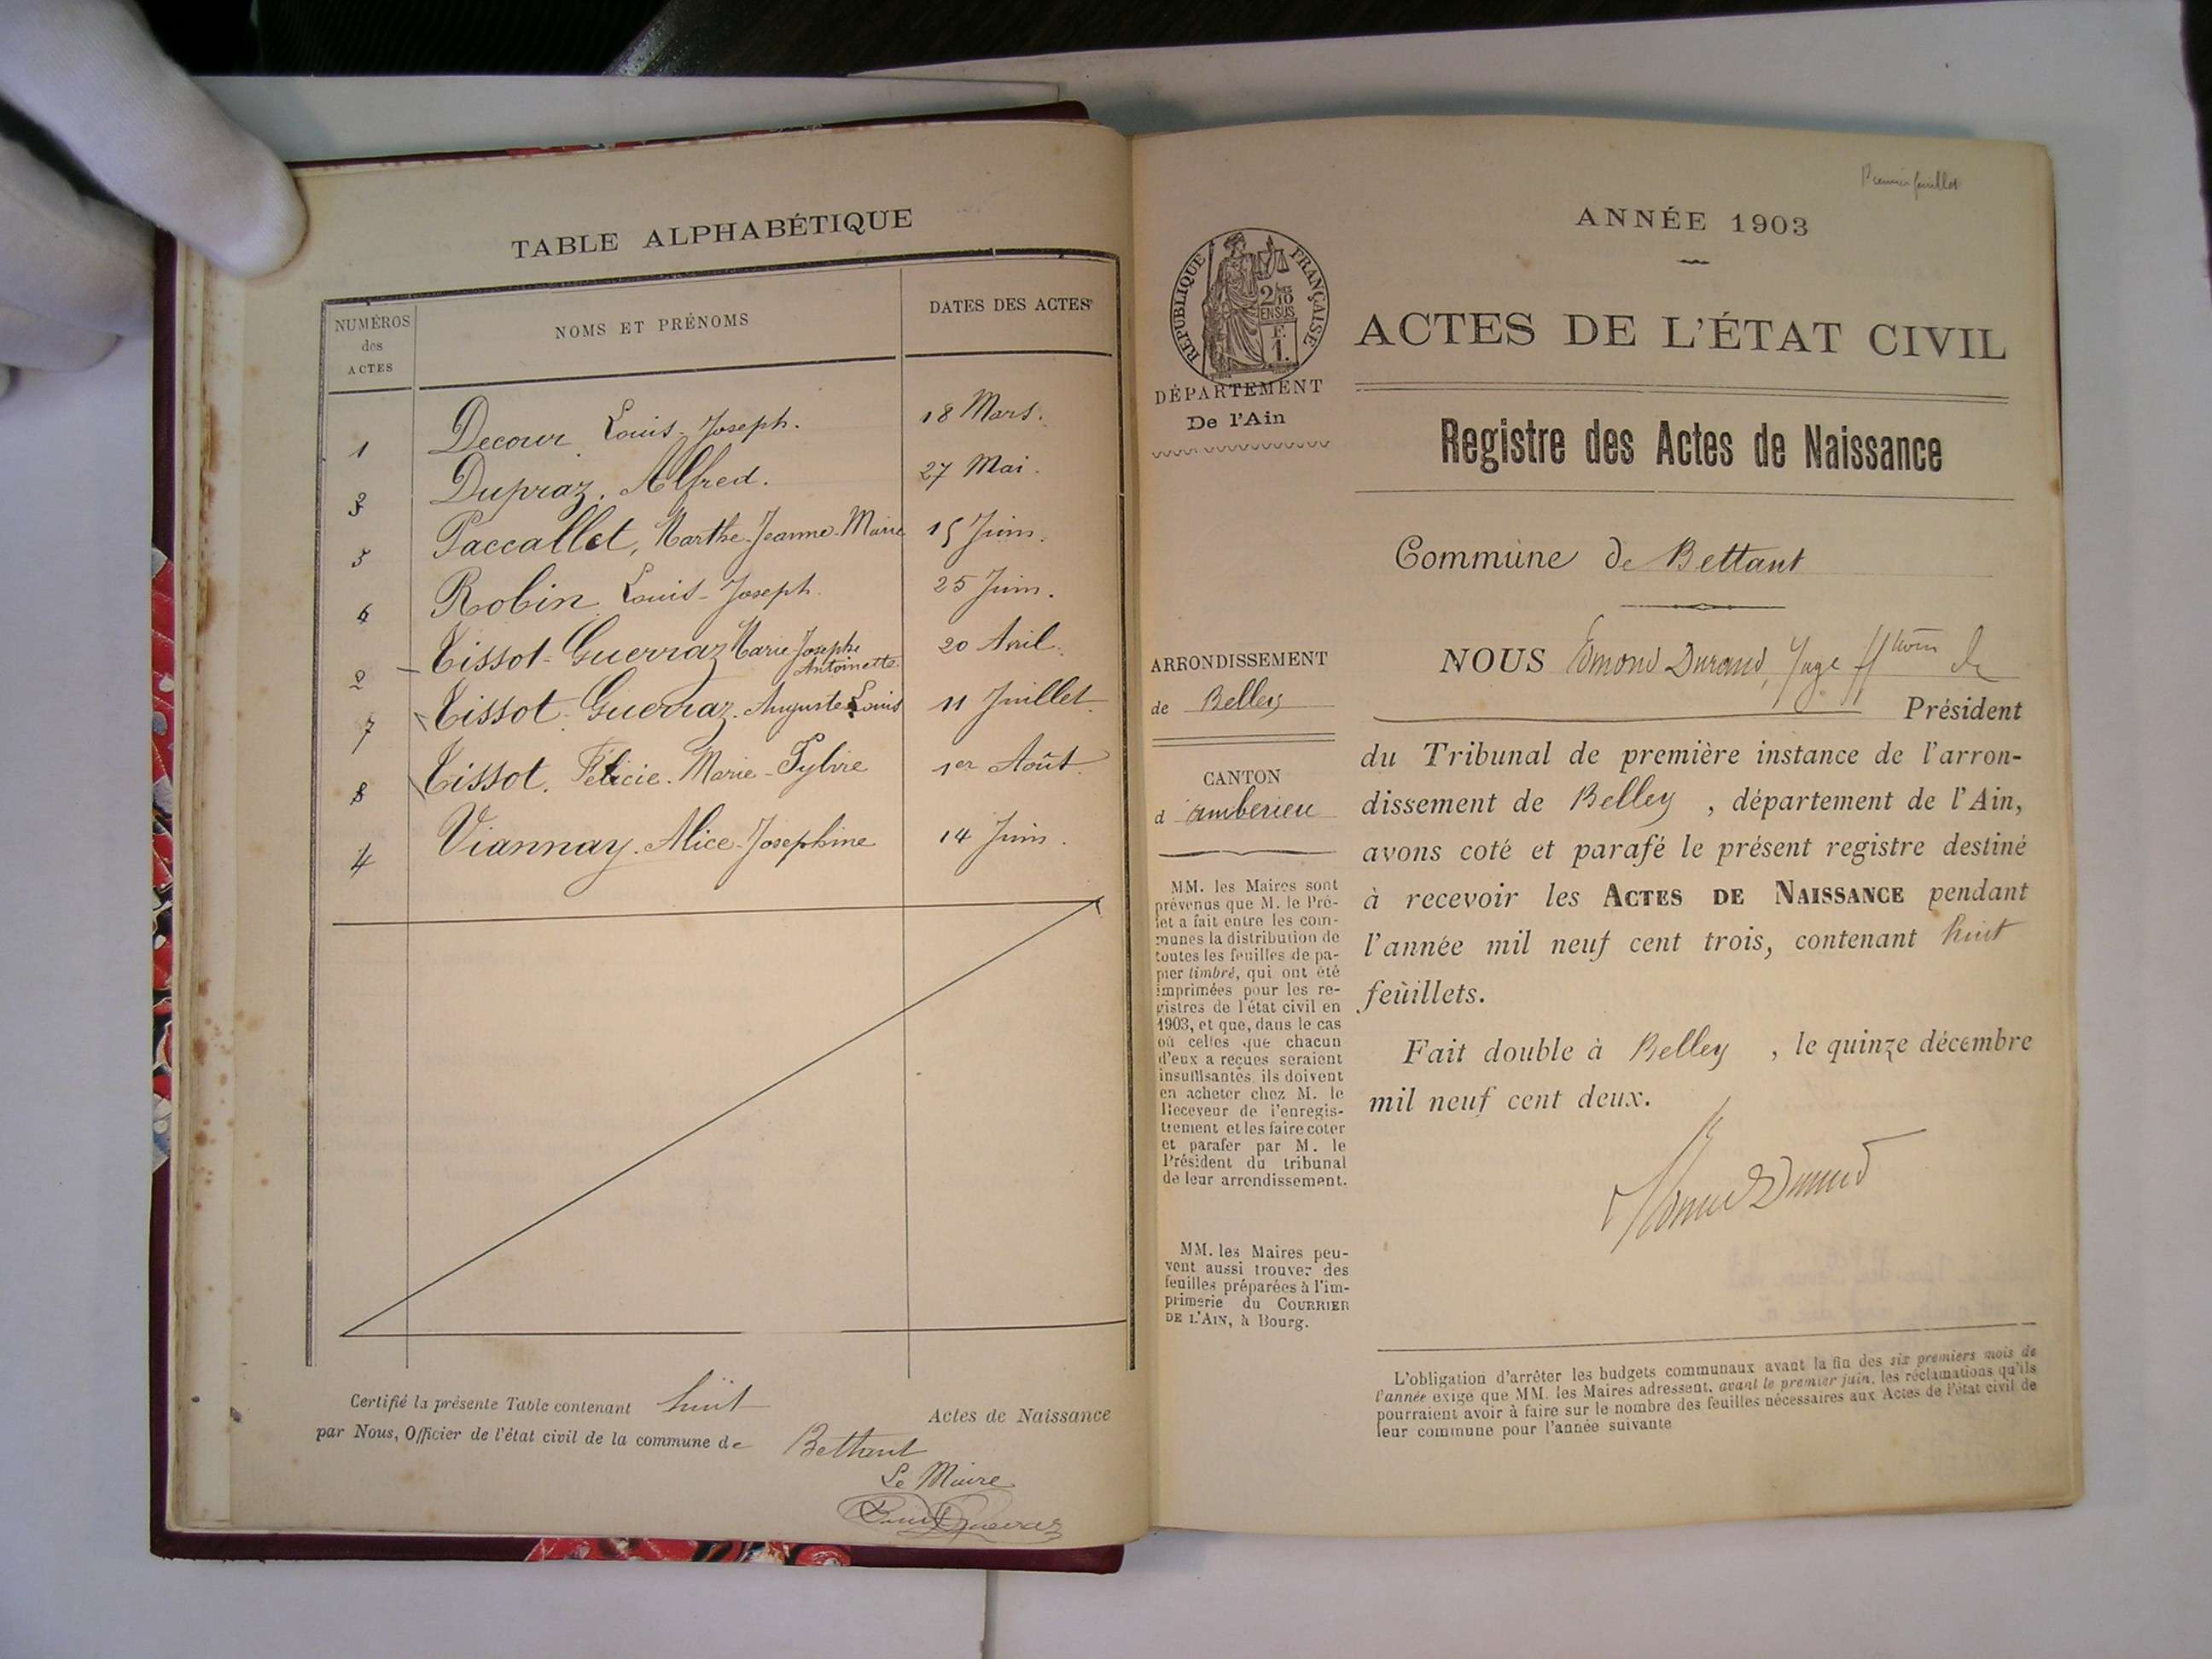 TABLE ALPHABÉTIQUE
NUMÉROS
des
ACTES
NOMS ET PRÉNOMS
DATES DES ACTES
1 Decour Louis-Joseph. 18 Mars.
3 Dupraz. Alfred. 27 Mai.
5 Paccallet, Marthe-Jeanne-Marie 15 Juin.
6 Robin Louis-Joseph. 25 Juin.
2 Tissot-Guerraz Marie-Josephe 20 Avril.
Antoinette
7 Tissot-Guerraz. Auguste Louis 11 Juillet
8 Tissot. Félicie-Marie-Sylvie 1er Août
4 Viannay. Alice-Joséphine 14 Juin.
Certifié la présente Table contenant huit Actes de Naissance
par Nous, Officier de l'état civil de la commune de Bettant
Le Maire
Premier feuillet
ANNÉE 1903
RÉPUBLIQUE FRANÇAISE
ACTES DE L'ÉTAT CIVIL
DÉPARTEMENT
De l'Ain
Registre des Actes de Naissance
Commune de Bettant
ARRONDISSEMENT
de Belley
CANTON
d'ambérieu
MM. les Maires sont
prévenus que M. le Pré-
fet a fait entre les com-
munes la distribution de
toutes les feuilles de pa-
pier timbré, qui ont été
imprimées pour les re-
gistres de l'état civil en
1903, et que, dans le cas
où celles que chacun
d'eux a reçues seraient
insuffisantes, ils doivent
en acheter chez M. le
Receveur de l'enregis-
trement et les faire coter
et parafer par M. le
Président du tribunal
de leur arrondissement.
MM. les Maires peu-
vent aussi trouver des
feuilles préparées à l'im-
primerie du COURRIER
DE L'AIN, à Bourg.
NOUS Edmond Durand, Juge de
Président
du Tribunal de première instance de l'arron-
dissement de Belley , département de l'Ain,
avons coté et parafé le présent registre destiné
à recevoir les ACTES DE NAISSANCE pendant
l'année mil neuf cent trois, contenant huit
feuillets.
Fait double à Belley , le quinze décembre
mil neuf cent deux.
L'obligation d'arrêter les budgets communaux avant la fin des six premiers mois de
l'année exige que MM. les Maires adressent, avant le premier juin, les réclamations qu'ils
pourraient avoir à faire sur le nombre des feuilles nécessaires aux Actes de l'état civil de
leur commune pour l'année suivante